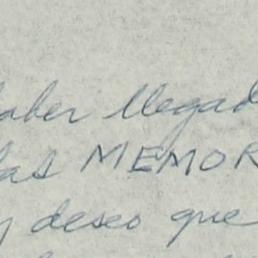 haber llegad
las MEMOR
y deseo que